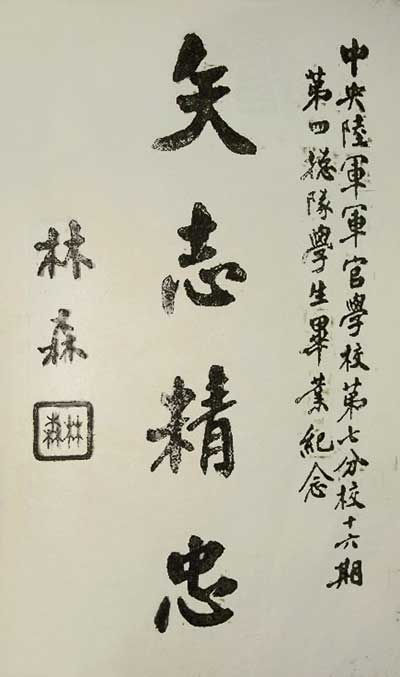 中央陸軍軍官學校第七分校十六期
第四總隊學生畢業紀念
矢志精忠
林森
林森